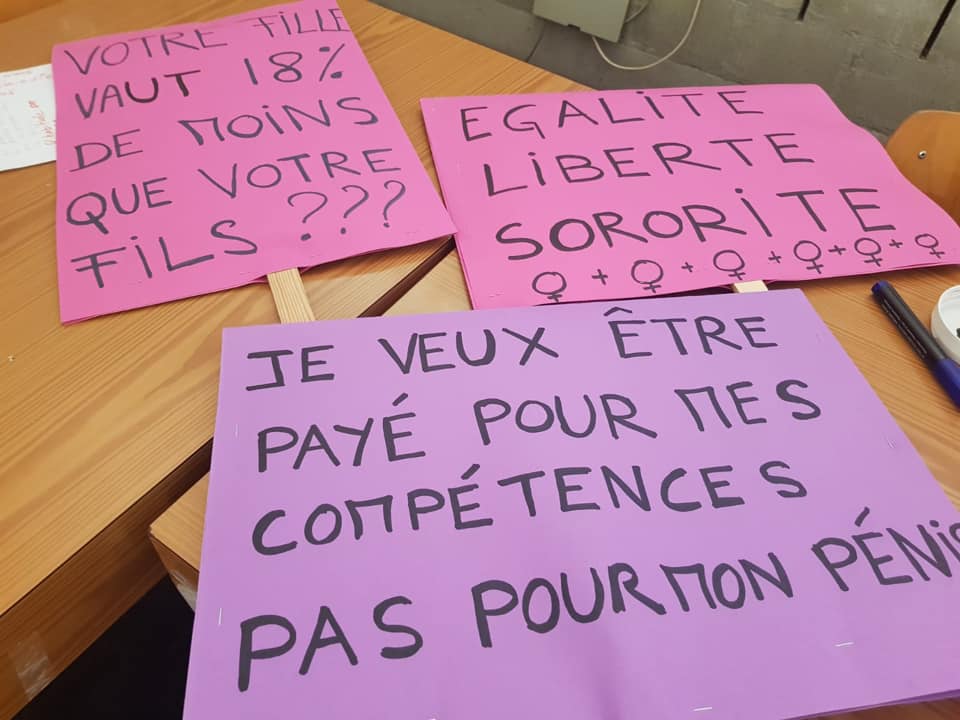 VOTRE FILLE
VAUT 18%
DE MOINS
QUE VOTRE
FILS ???
EGALITE
LIBERTE
SORORITE
♀ + ♀ + ♀ + ♀ + ♀ + ♀
JE VEUX ÊTRE
PAYÉ POUR MES
COMPÉTENCES
PAS POUR MON PÉNIS